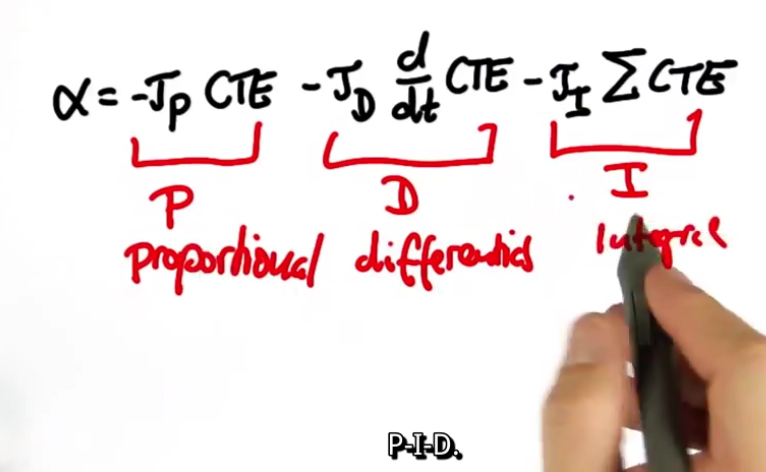 α = -τ_P CTE - τ_D d/dt CTE - τ_I Σ CTE
P D I
proportional differential Integral
P-I-D.